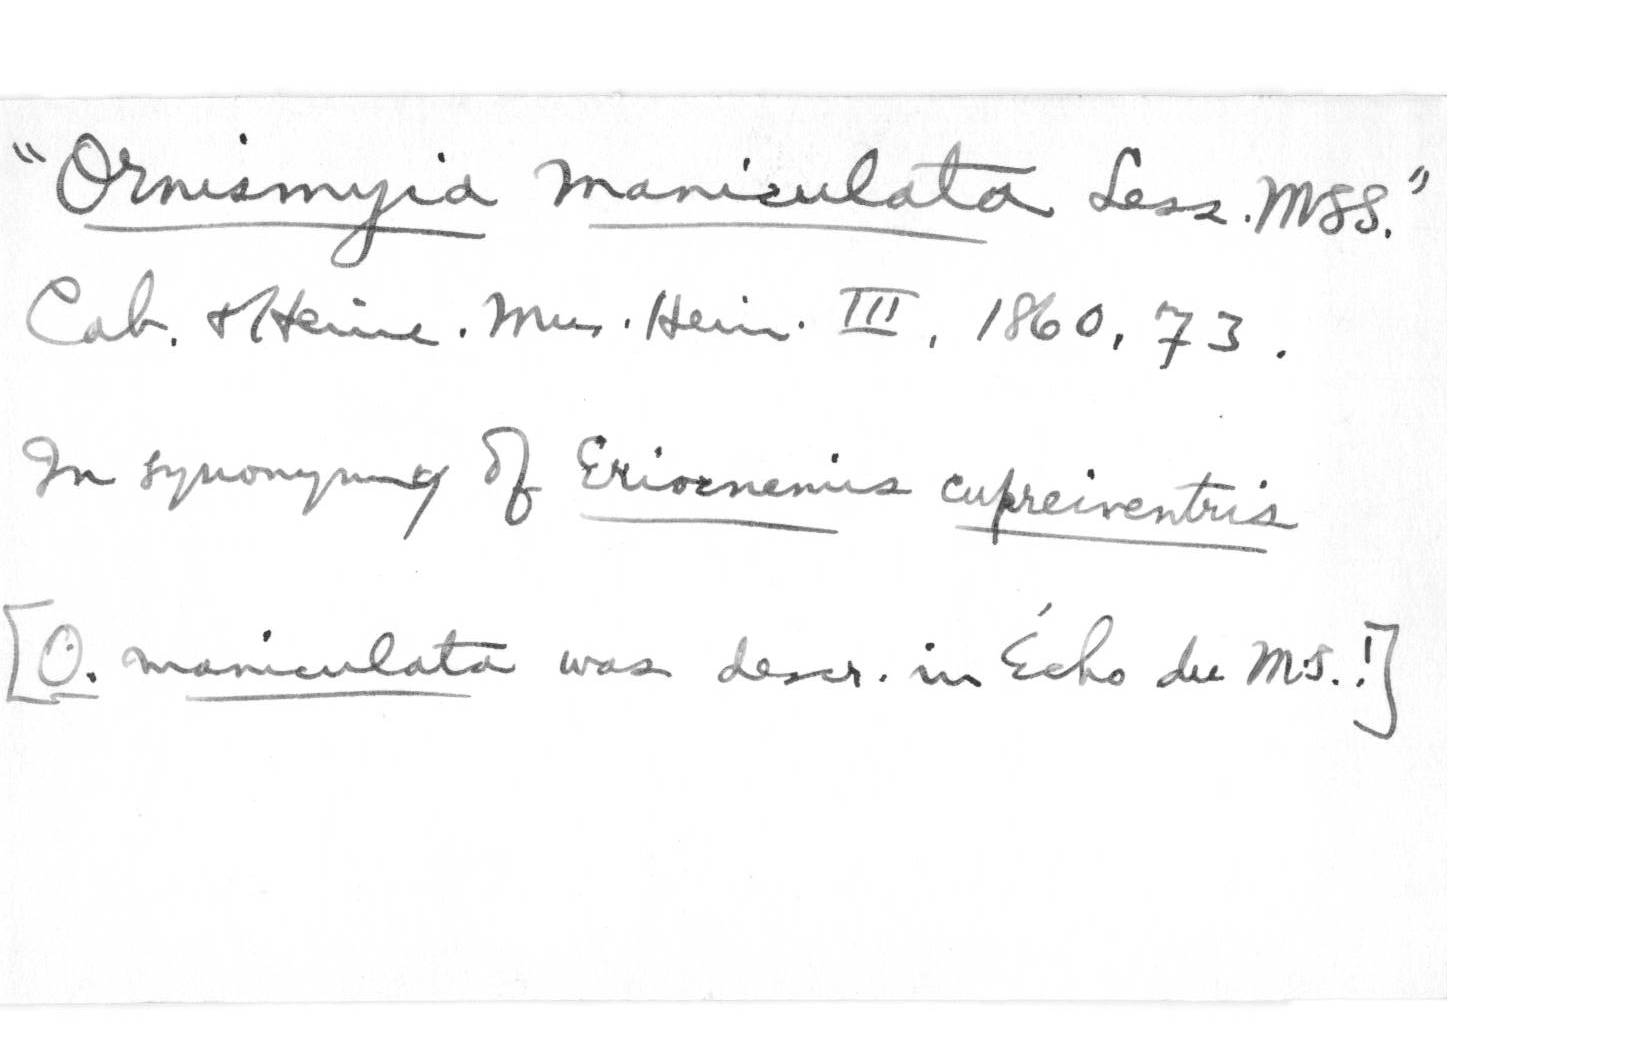 "Ornismyia maniculata Less. MSS."
Cab. & Heine. Mus. Hein. III, 1860, 73.
In synonymy of Eriocnemis cupreiventris
[O. maniculata was descr. in Écho du M.S.!]